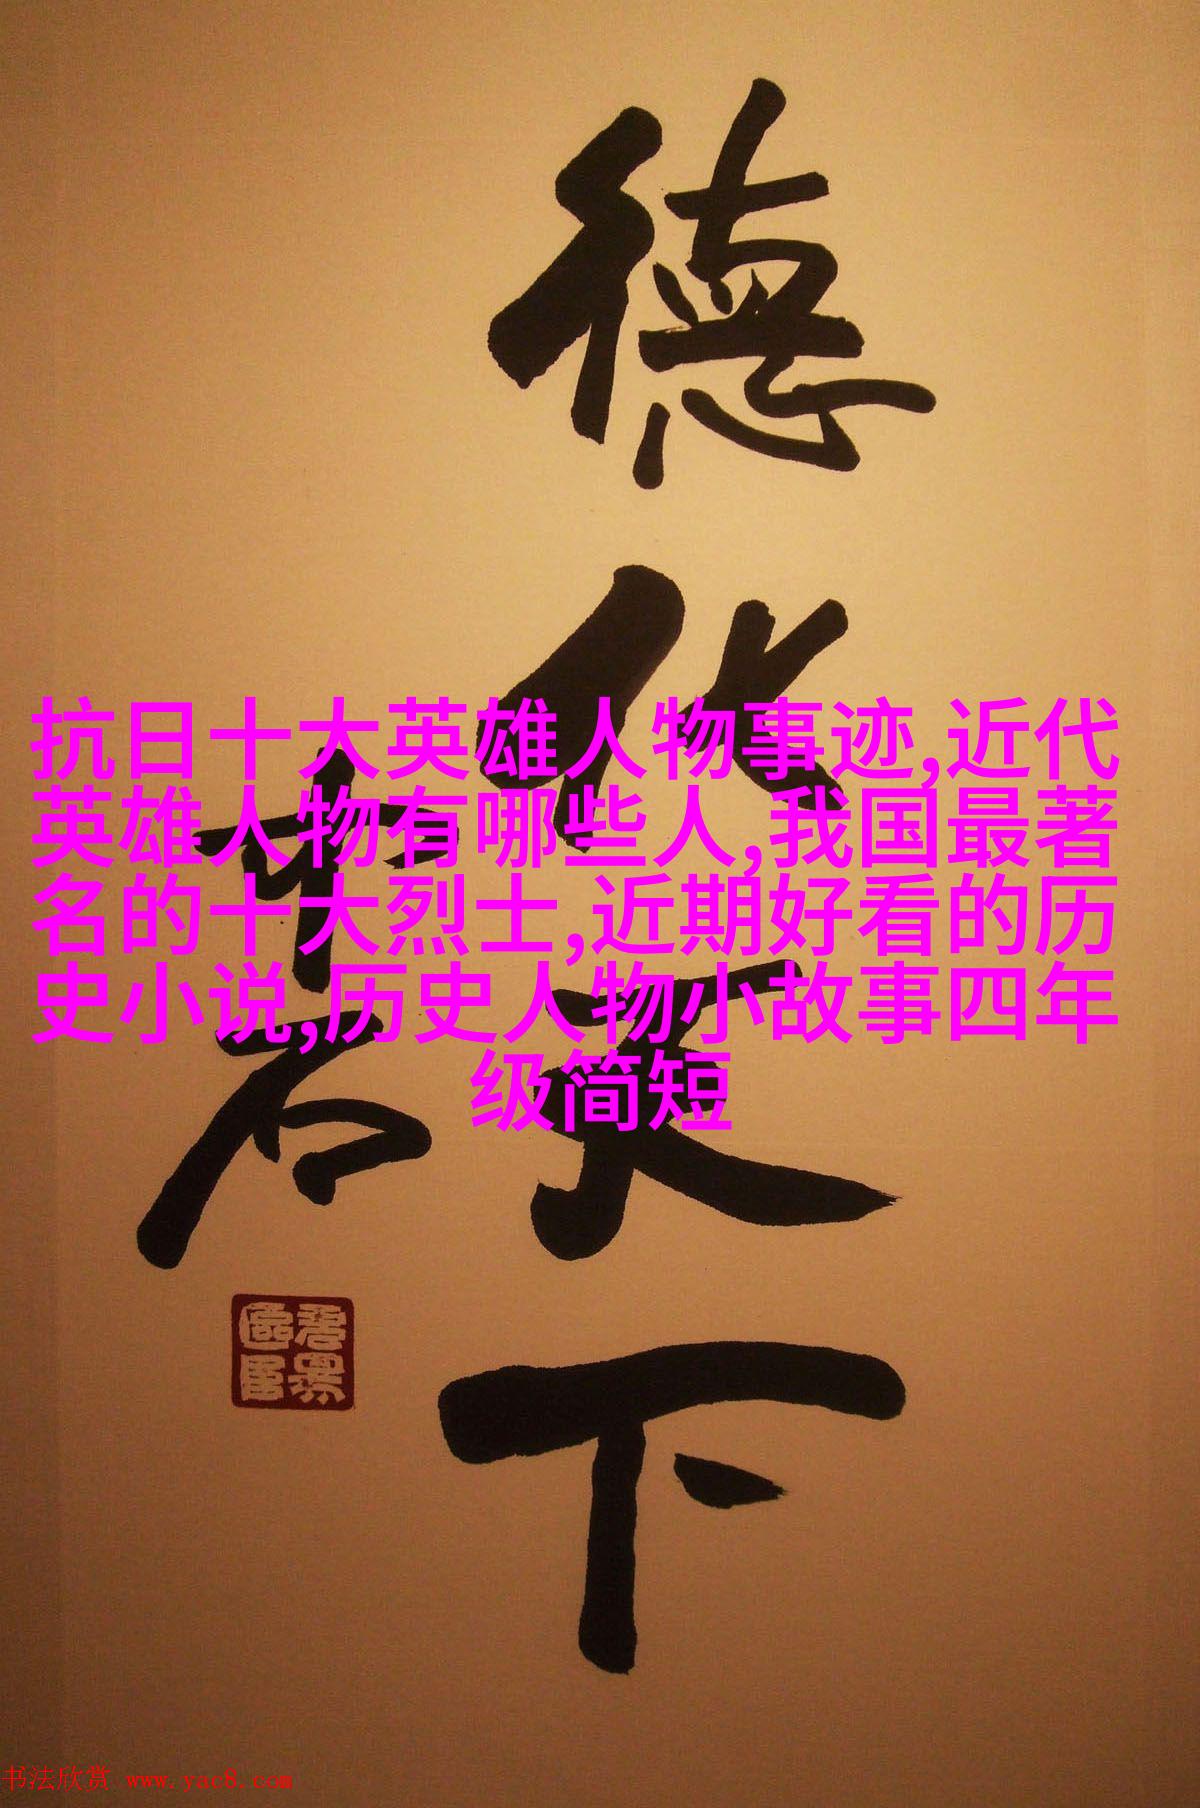 德化天下
中石
抗日十大英雄人物事迹,近代
英雄人物有哪些人,我国最著
名的十大烈士,近期好看的历
史小说,历史人物小故事四年
级简短
书法欣赏 www.yac8.com